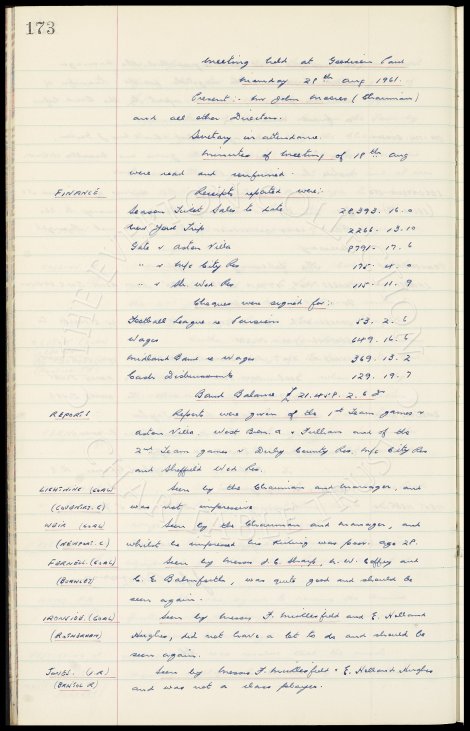 173
Meeting held at Goodison Park
Monday 28th Aug 1961.
Present:- Mr John Moores (Chairman)
and all other Directors.
Secretary in attendance
Minutes of meeting of 18th Aug
were read and confirmed.
FINANCE Receipts reported were:
Season Ticket Sales to date 28,393. 16. 0
New York Trip 2266. 13. 10
Gate v Aston Villa 8791. 17. 6
" v M/c City Res 175. 4. 0
" v Sh. Wed Res 115. 11. 9
Cheques were signed for:-
Football League re Pension 53. 2. 6
Wages 649. 16. 5
Midland Bank re Wages 369. 13. 2
Cash Disbursements 129. 19. 7
Bank Balance £21,458. 2. 6
REPORTS Reports was given of the 1st Team games v
Aston Villa. West Brom. A v Fulham and of the
2nd Team games v Derby County Res, M/c City Res
and Sheffield Wed Res.
LIGHTNING (GOAL) Seen by the Chairman and Manager, and
(COVENTRY. C) was not impressive
WEIR (GOAL) Seen by the Chairman and Manager, and
(NEWPORT. C) whilst he impressed his kicking was poor. age 28.
FURNELL (GOAL) Seen by Messrs J. C. Sharp, N. W. Coffey and
(BURNLEY) C. E. Balmforth, was quite good and should be
seen again.
IRONSIDE. (GOAL) Seen by Messrs F. Micklesfield and E. Holland
(ROTHERHAM) Hughes, did not have a lot to do and should be
seen again.
JONES. (I.R) Seen by Messrs F. Micklesfield & E. Holland Hughes
(BRISTOL R) and was not a class player.